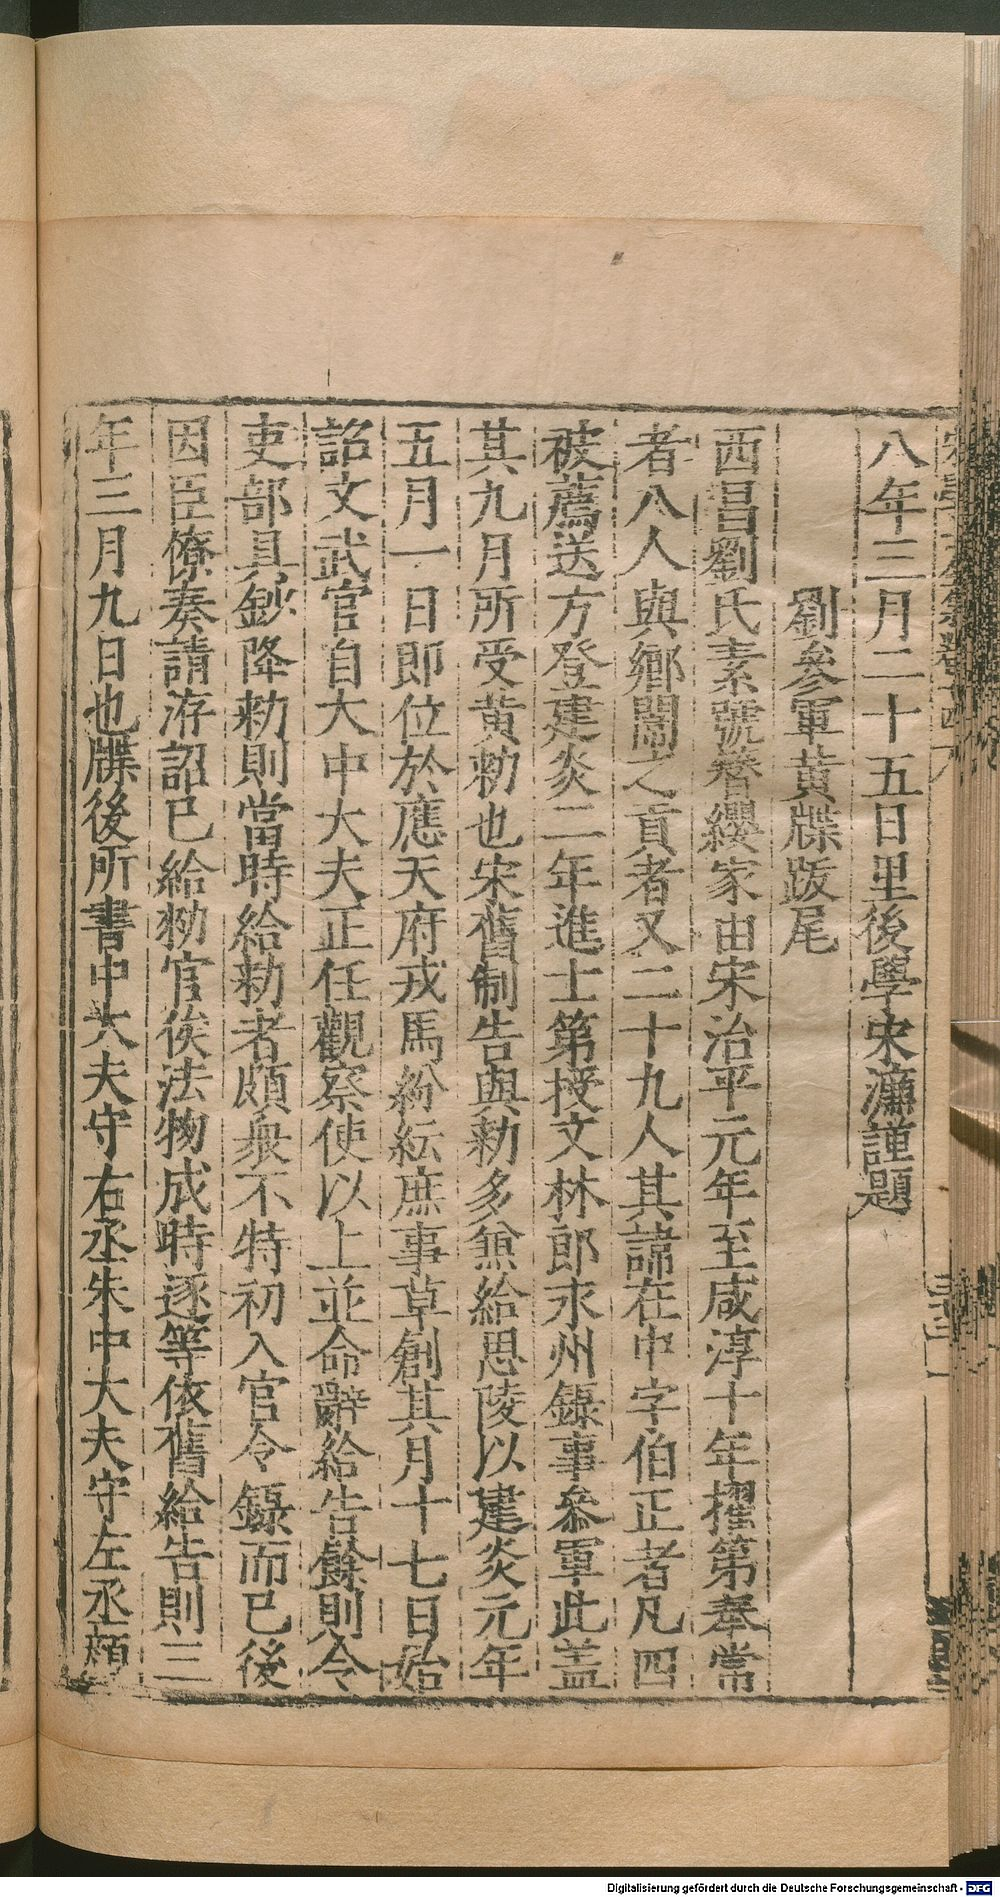 八年三月二十五日里後學宋濂謹題
劉參軍黄牒跋尾
西昌劉氏素號簪纓家由宋治平元年至咸淳十年擢第奉常
者八人與鄉闈之貢者又二十九人其諱在中字伯正者凡四
被薦送方登建炎二年進士第授文林郎永州錄事參軍此盖
其九月所受黄勑也宋舊制告與勑多兼給思陵以建炎元年
五月一日即位於應天府戎馬紛紜庶事草創其月十七日始
詔文武官自大中大夫正任觀察使以上並命辭給告餘則令
吏部具鈔降勑則當時給勑者頗衆不特初入官令錄而已後
因臣僚奏請洊詔已給勑官俟法物成時逐等依舊給告則三
年三月九日也牒後所書中大夫守右丞朱中大夫守左丞顔
Digitalisierung gefördert durch die Deutsche Forschungsgemeinschaft - DFG